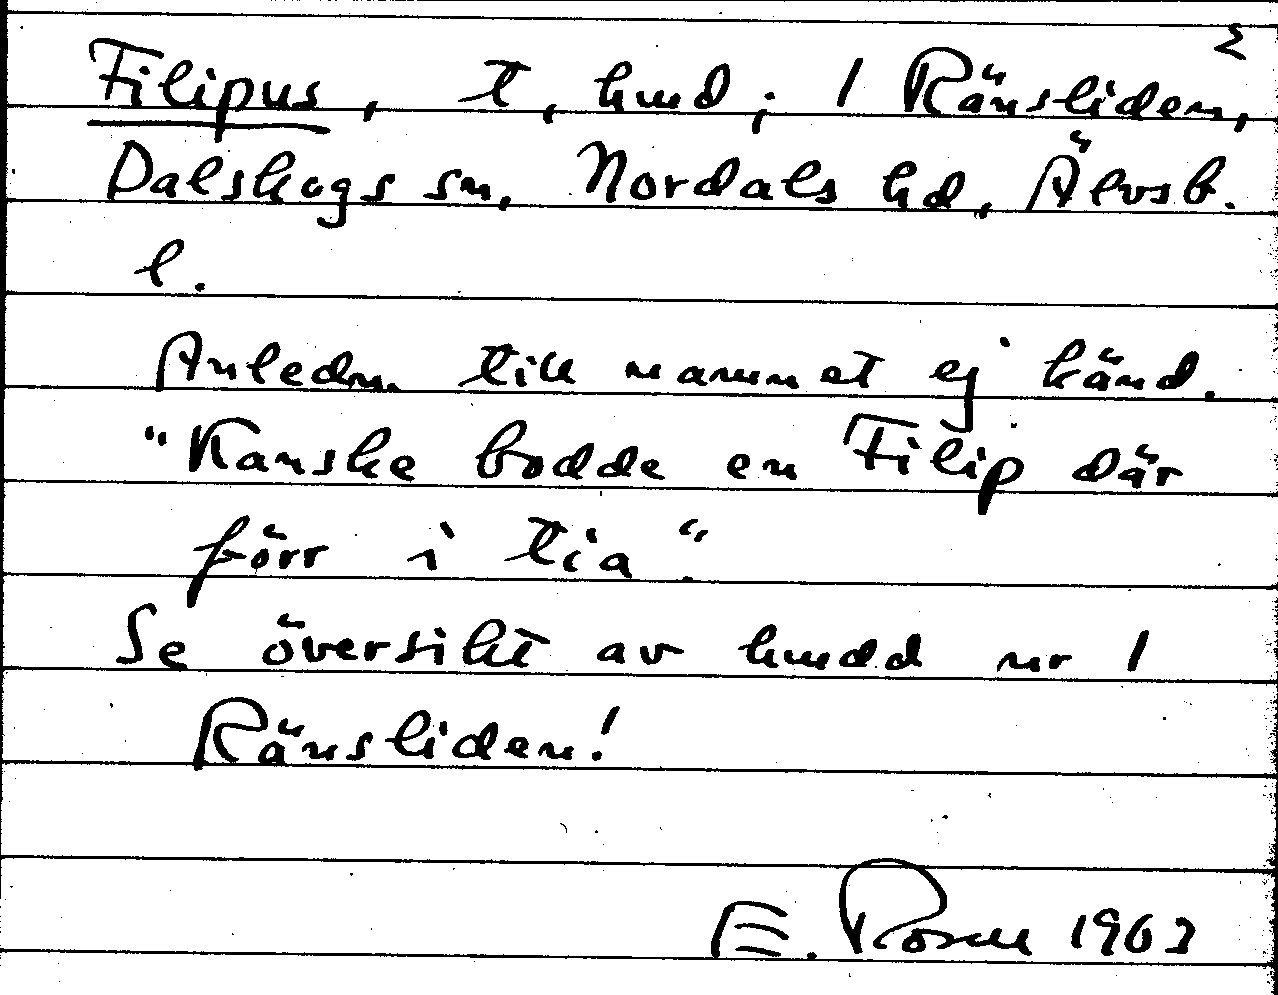 2
Filipus, t, hmd; 1 Ränsliden,
Dalskogs sn, Nordals hd, Älvsb.
l.
Anledn. till namnet ej känd.
"Kanske bodde en Filip där
förr i tia".
Se översikt av hmdd nr 1
Ränsliden!
E. Rosell 1963